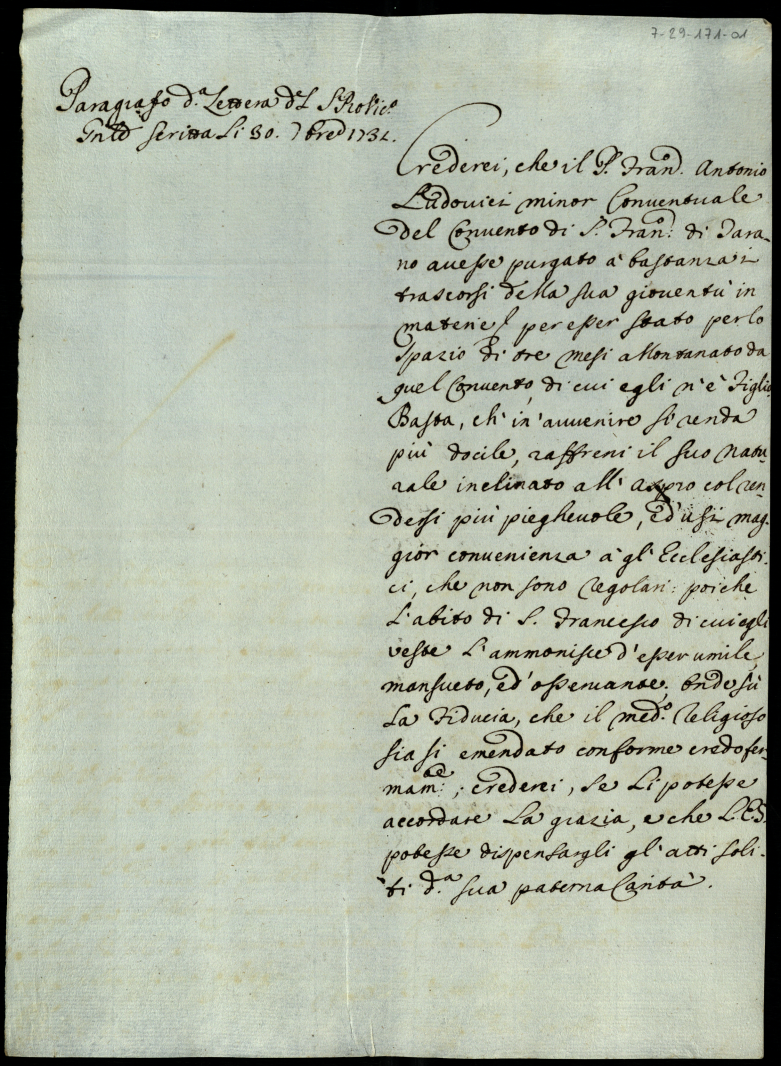 7-29-171-01
Paragrafo d.ª Lettera del S.r
scritta li 30. 7bre 1731.
Crederei, che il P. Fran.co Antonio
Ludovici minor Conventuale
del Convento di S. Fran.co: di Tara-
no avesse purgato à bastanza i
trascorsi della sua gioventù in
materie per esser stato per lo
spazio di tre mesi allontanato da
quel Convento, di cui egli n'è Figlio,
Basta, ch'in'avvenire si renda
più docile, raffreni il suo natu-
rale inclinato all' aspro col ren-
dersi più pieghevole, ed'usi mag-
gior convenienza à gl'Ecclesiasti-
ci, che non sono regolari: poiche
l'abito di S. Francesco di cui egli
veste l'ammonisce d'esser umile,
mansueto, ed'osservante; onde sù
la Fiducia, che il med.o Religioso
siasi emendato conforme credo fer-
mam:te; crederei, se li potesse
accordare la grazia, e che L.ES.
potesse dispensargli gl'atti soli-
ti d.ª sua paterna Carità.